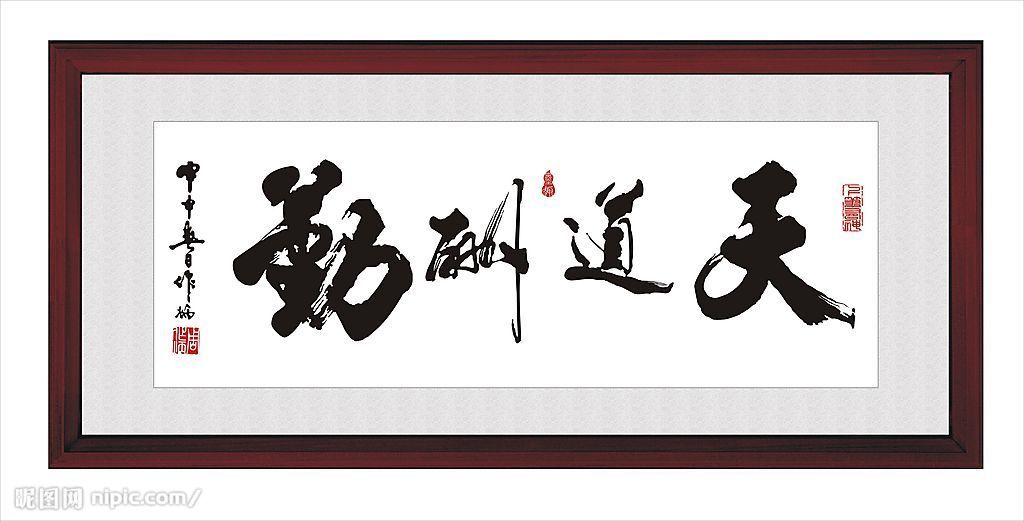 天道酬勤
甲申春日作炳
昵图网 nipic.com/